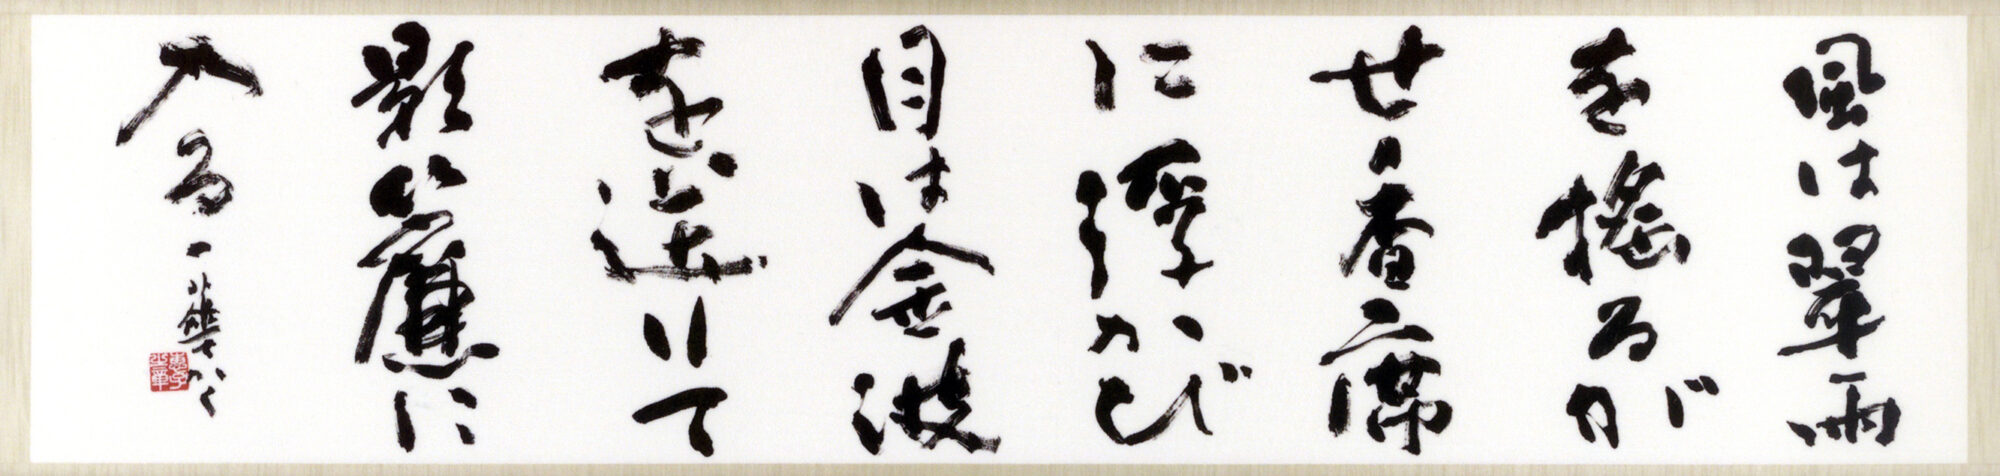 風は翠雨
を揺るが
せ香席
に浮かび
月は金波
を送りて
影簾に
入る
一華かく